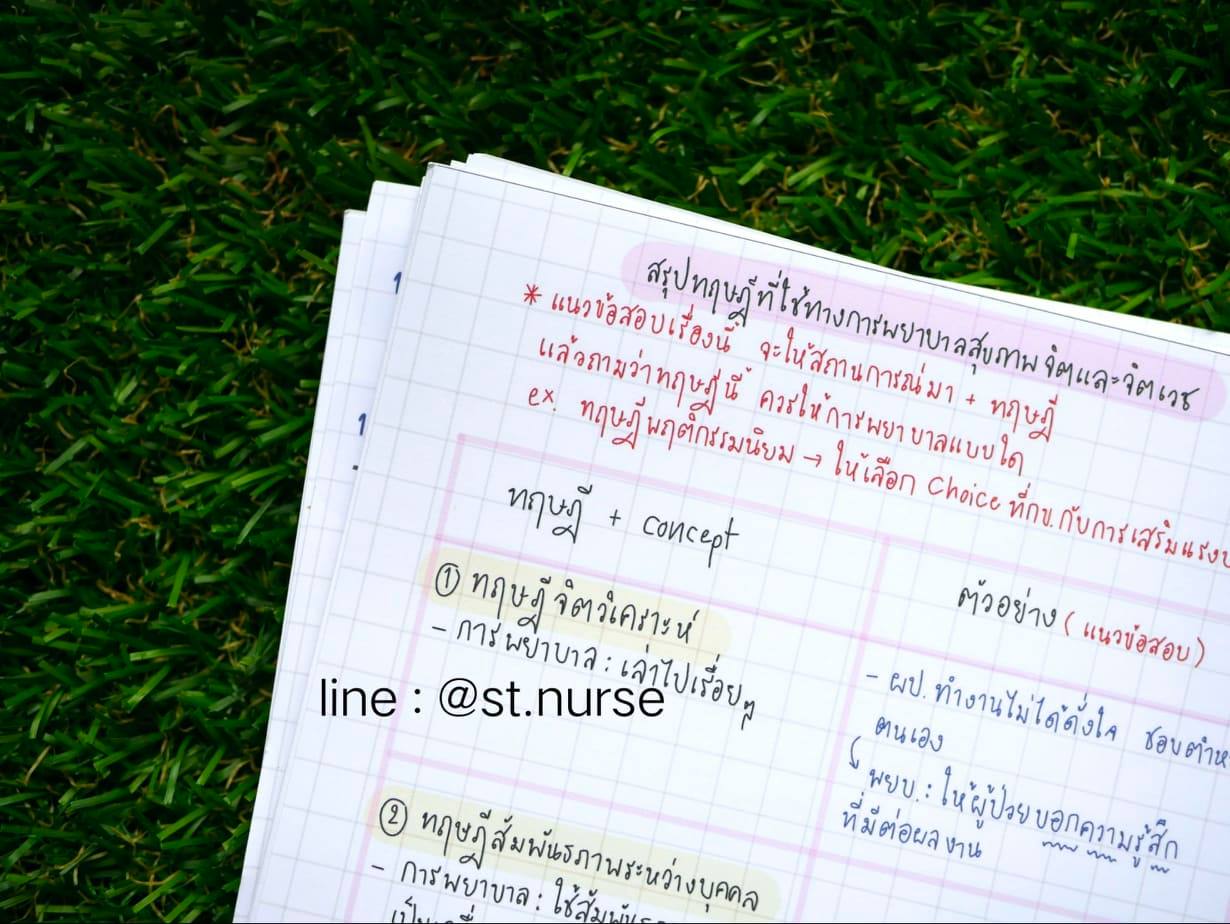 สรุปทฤษฎีที่ใช้ทางการพยาบาลสุขภาพจิตและจิตเวช
* แนวข้อสอบเรื่องนี้ จะให้สถานการณ์มา + ทฤษฎี
แล้วถามว่าทฤษฎีนี้ ควรให้การพยาบาลแบบใด
ex. ทฤษฎีพฤติกรรมนิยม → ให้เลือก Choice ที่กข.กับการเสริมแรง
ทฤษฎี + concept
ตัวอย่าง (แนวข้อสอบ)
① ทฤษฎีจิตวิเคราะห์
- การพยาบาล : เล่าไปเรื่อยๆ
- ผป. ทำงานไม่ได้ดั่งใจ ชอบตำห
ตนเอง
พยบ. : ให้ผู้ป่วยบอกความรู้สึก
ที่มีต่อผลงาน
line : @st.nurse
② ทฤษฎีสัมพันธภาพระหว่างบุคคล
- การพยาบาล : ใช้สัมพันธ
1
1